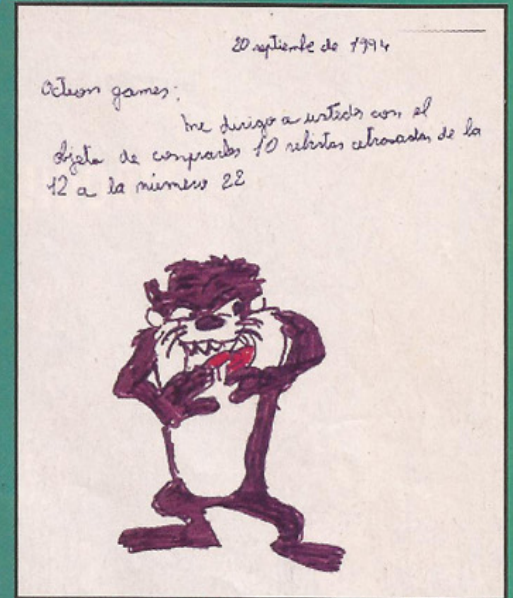 20 septiembre de 1994
Acteon games:
Me dirijo a ustedes con el
objeto de comprarles 10 rebistas atrasadas de la
12 a la número 22